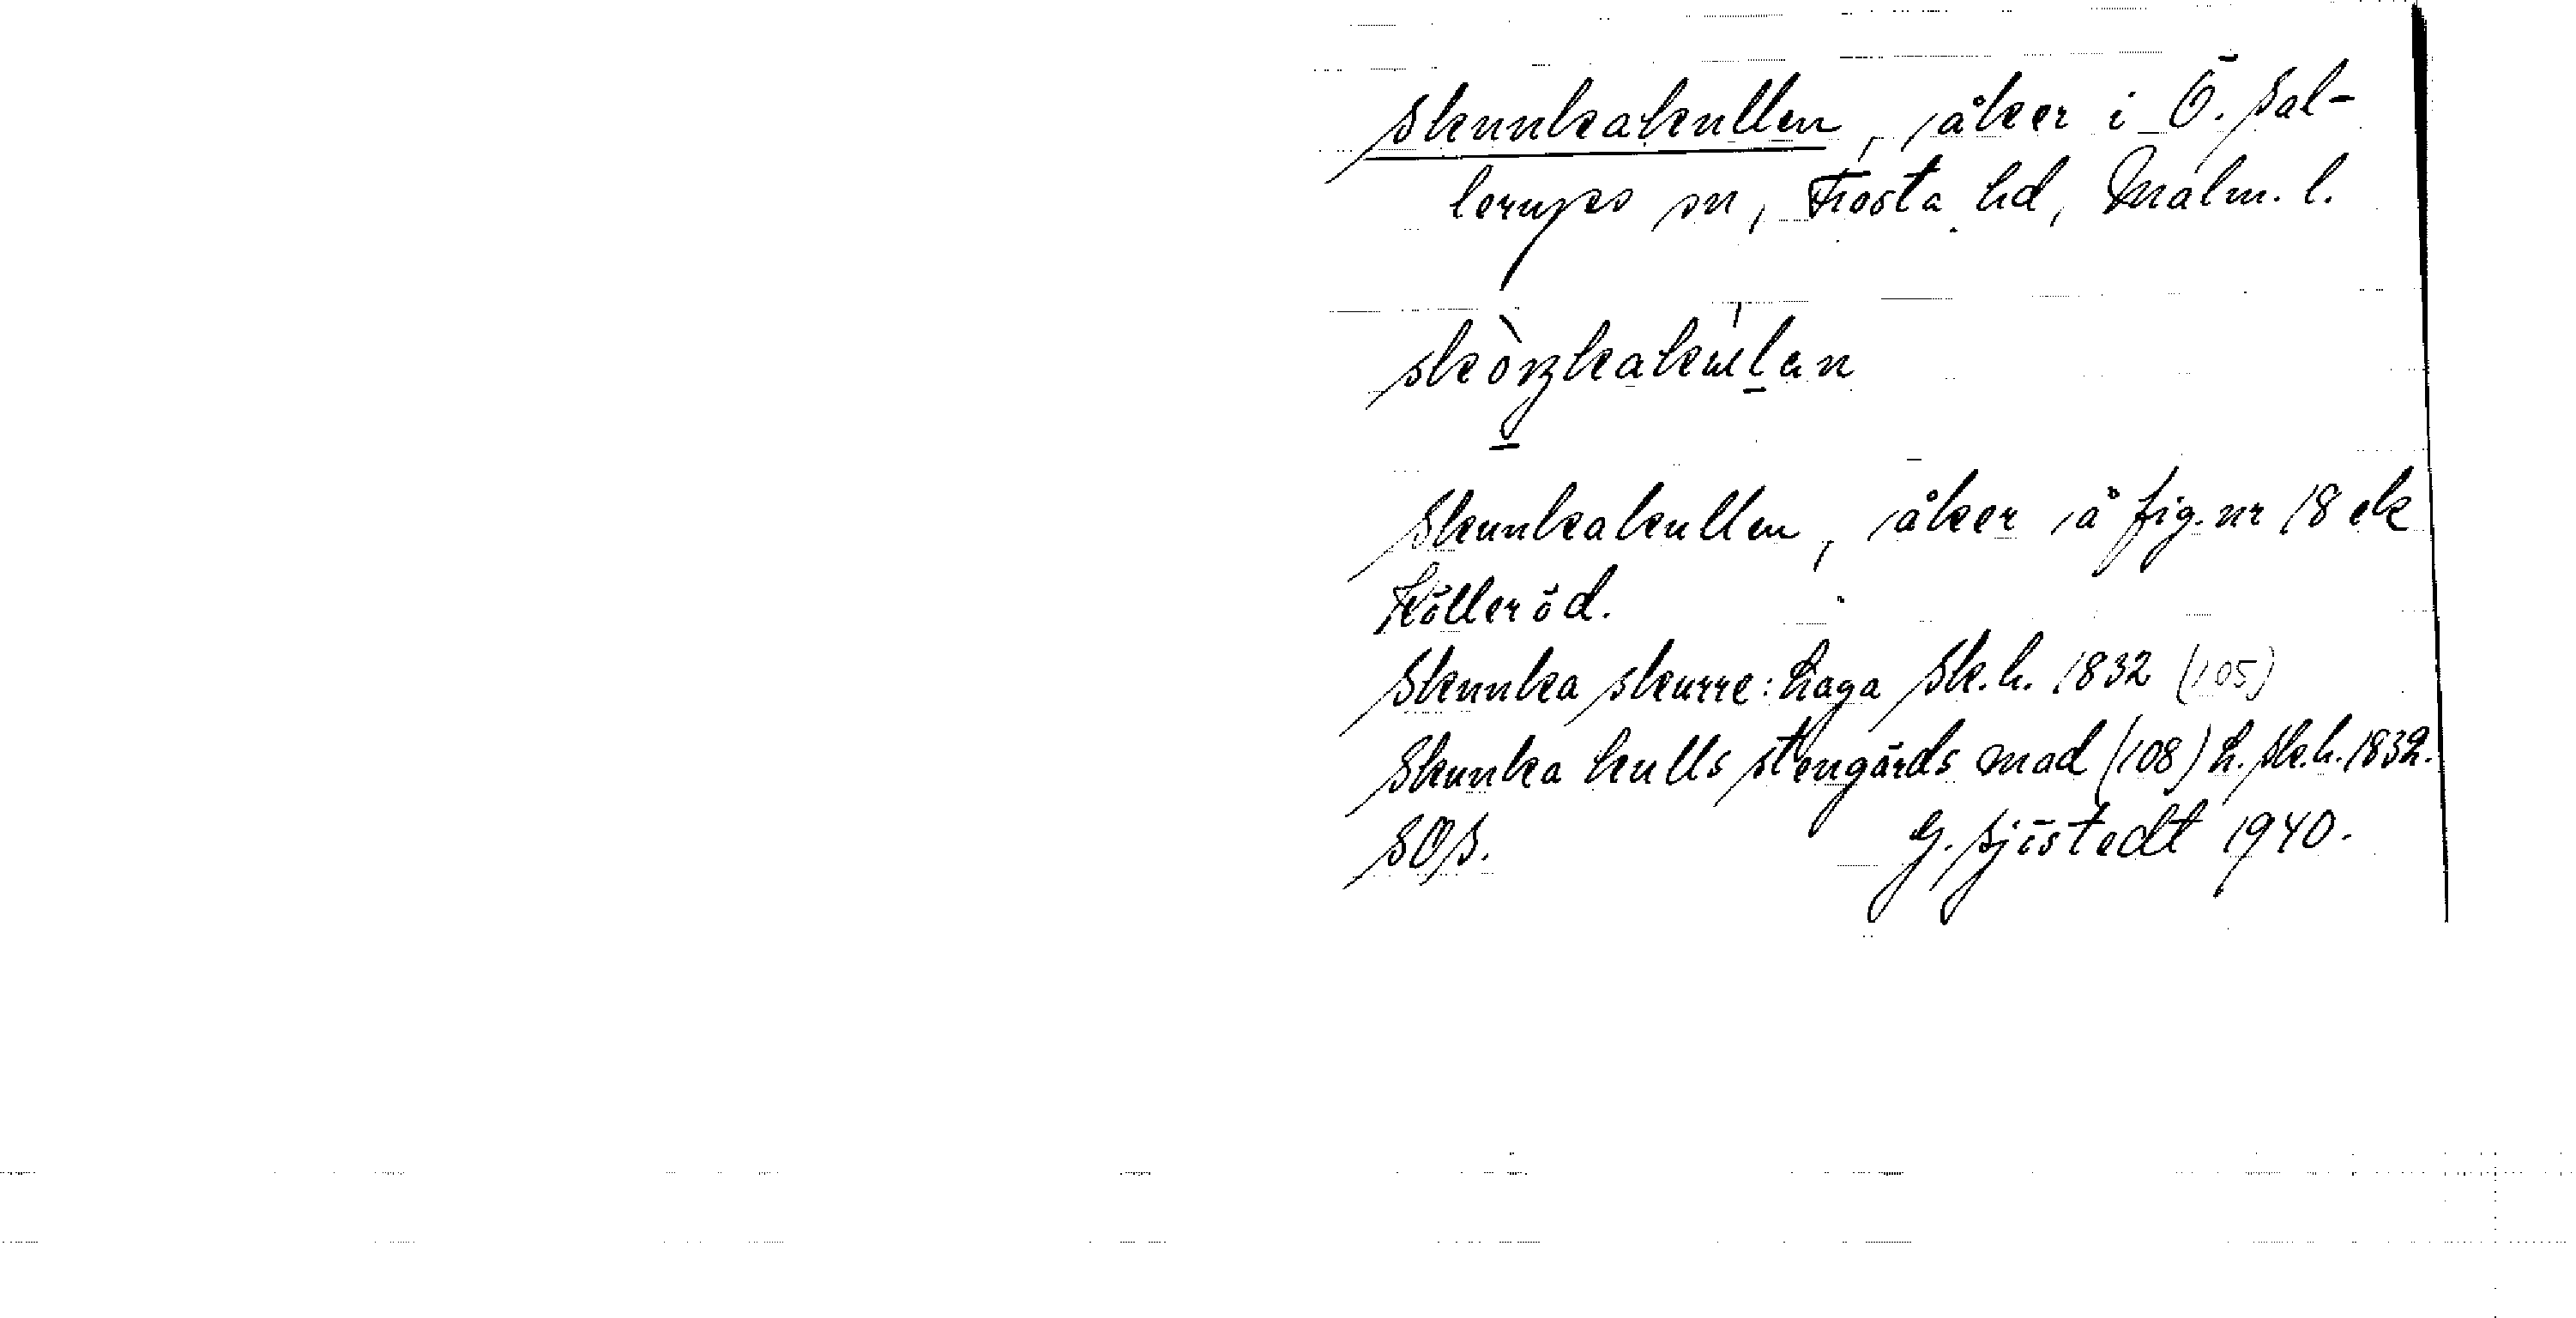 Skunkakullen, åker i Ö. Sal-
lerups sn, Frosta hd, Malm. l.
Skunkakullen, åker å fig. nr 18 ek
Kölleröd.
Skunka skurre: haga Sk. h. 1832 (105)
Skunka kulls stengårds mad (108) h. sk. h. 1832.
SOS.
G. Sjöstedt 1940.